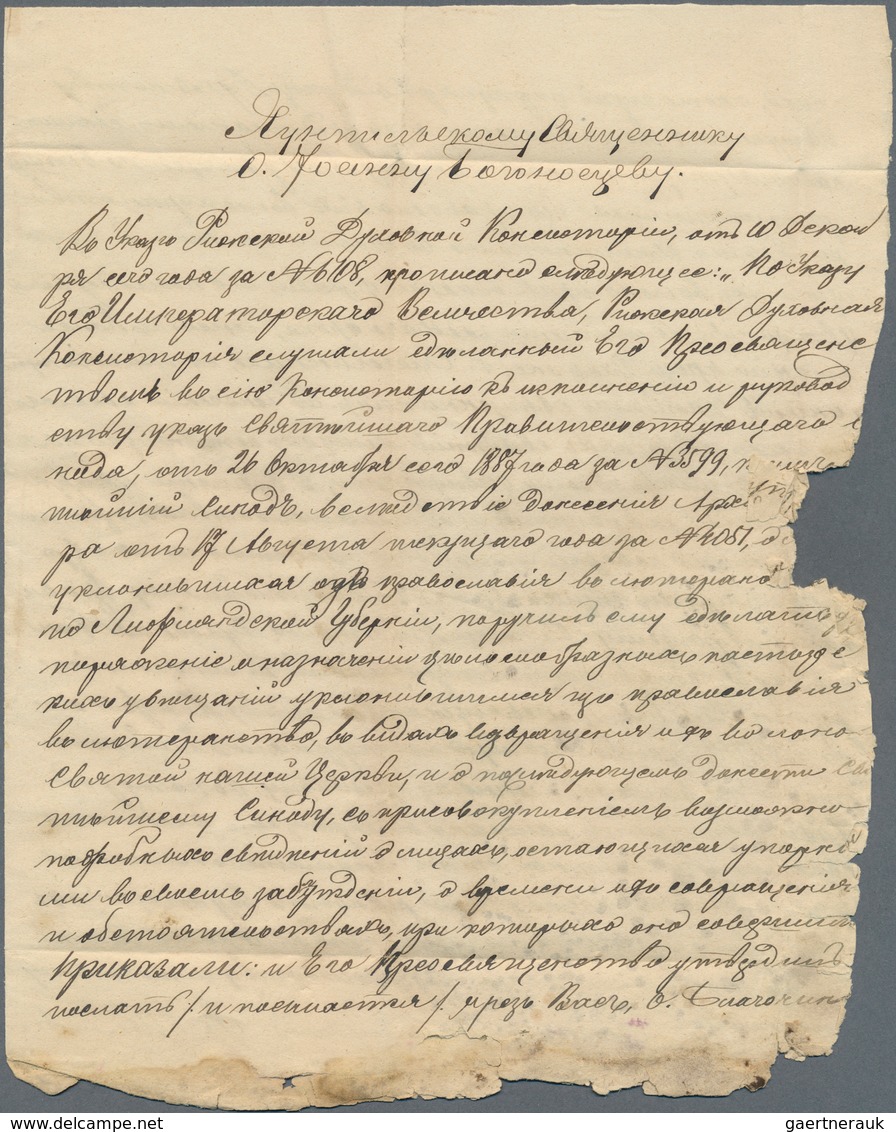 Священнику
О. Іоанну Богоносцеву.
Въ Указѣ Рижской Духовной Консисторіи, отъ 10 Декаб
ря сего года за № 6108, прописано слѣдующее: „По Указу
Его Императорскаго Величества, Рижская Духовная
Консисторія слушали сданный Его Преосвященс
твомъ въ сію Консисторію къ исполненію и руковод
ству указъ Святѣйшаго Правительствующаго
нода, отъ 26 Октября сего 1887 года за № 3599,
тѣйшій Синодъ, вслѣдствіе донесенія
ра отъ 17 Августа текущаго года за № 4051,
уклонившихся отъ православія въ лютеранс
по Лифляндской Губерніи, поручилъ ему сдѣлать
поряженіе о назначеніи цѣлесообразныхъ пастырс
кихъ увѣщаній уклонившимся изъ православія
въ лютеранство, въ видахъ возвращенія ихъ въ лоно
Святой нашей Церкви, и о послѣдующемъ донести Свя
тѣйшему Синоду, съ присовокупленіемъ возможно
подробныхъ свѣдѣній о лицахъ, остающихся упорны
ми въ своемъ заблужденіи, о времени ихъ совращенія
и обстоятельствахъ, при которыхъ оно совершил
Приказали: и Его Преосвященство утвердилъ
послать /: и посылается :/ чрезъ Васъ, о. Благочин
gaertnerauk